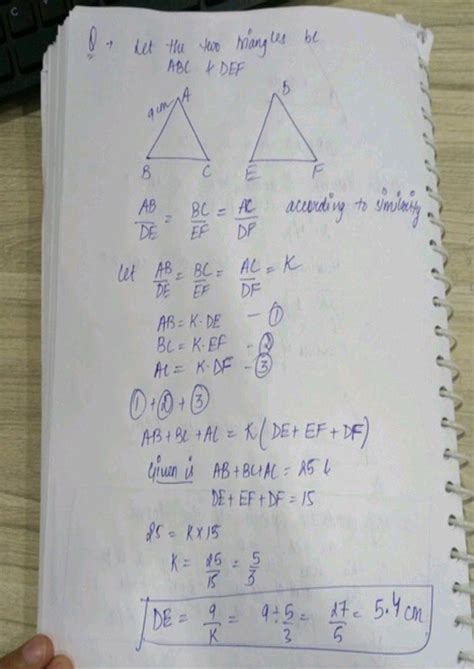 Q → Let the two triangles be
ABC & DEF
9cm A D
B C E F
AB/DE = BC/EF = AC/DF according to similarity
Let AB/DE = BC/EF = AC/DF = K
AB = K·DE — ①
BC = K·EF — ②
AC = K·DF — ③
① + ② + ③
AB + BC + AC = K(DE + EF + DF)
Given is AB + BC + AC = 25 &
DE + EF + DF = 15
25 = K × 15
K = 25/15 = 5/3
DE = 9/K = 9 ÷ 5/3 = 27/5 = 5.4 cm